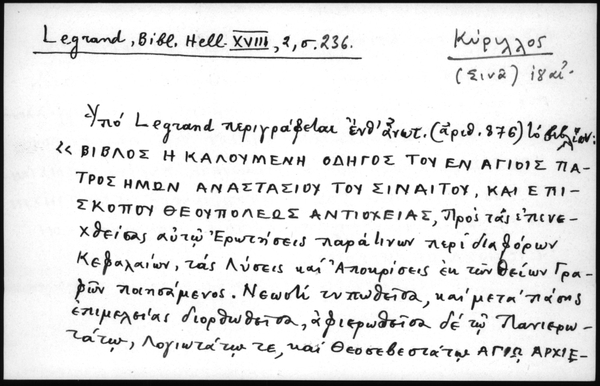 Legrand, Bibl. Hell. XVIII, 2, σ. 236.
Κύριλλος
(Σινᾶ) ιη' αἰ.
Ὑπό Legrand περιγράφεται ἔνθ' ἀνωτ. (ἀριθ. 876) τό βιβλίον:
«ΒΙΒΛΟΣ Η ΚΑΛΟΥΜΕΝΗ ΟΔΗΓΟΣ ΤΟΥ ΕΝ ΑΓΙΟΙΣ ΠΑ-
ΤΡΟΣ ΗΜΩΝ ΑΝΑΣΤΑΣΙΟΥ ΤΟΥ ΣΙΝΑΙΤΟΥ, ΚΑΙ ΕΠΙ-
ΣΚΟΠΟΥ ΘΕΟΥΠΟΛΕΩΣ ΑΝΤΙΟΧΕΙΑΣ, Πρὸς τὰς ἐπενε-
χθείσας αὐτῷ Ἐρωτήσεις παρά τινων περί διαφόρων
Κεφαλαίων, τάς Λύσεις καί Ἀποκρίσεις ἐκ τῶν θείων Γρα-
φῶν ποιησάμενος. Νεωστί τυπωθεῖσα, καί μετά πάσης
ἐπιμελείας διορθωθεῖσα, ἀφιερωθεῖσα δέ τῷ Πανιερω-
τάτῳ, Λογιωτάτῳ τε, καί Θεοσεβεστάτῳ ΑΓΙῼ ΑΡΧΙΕ-